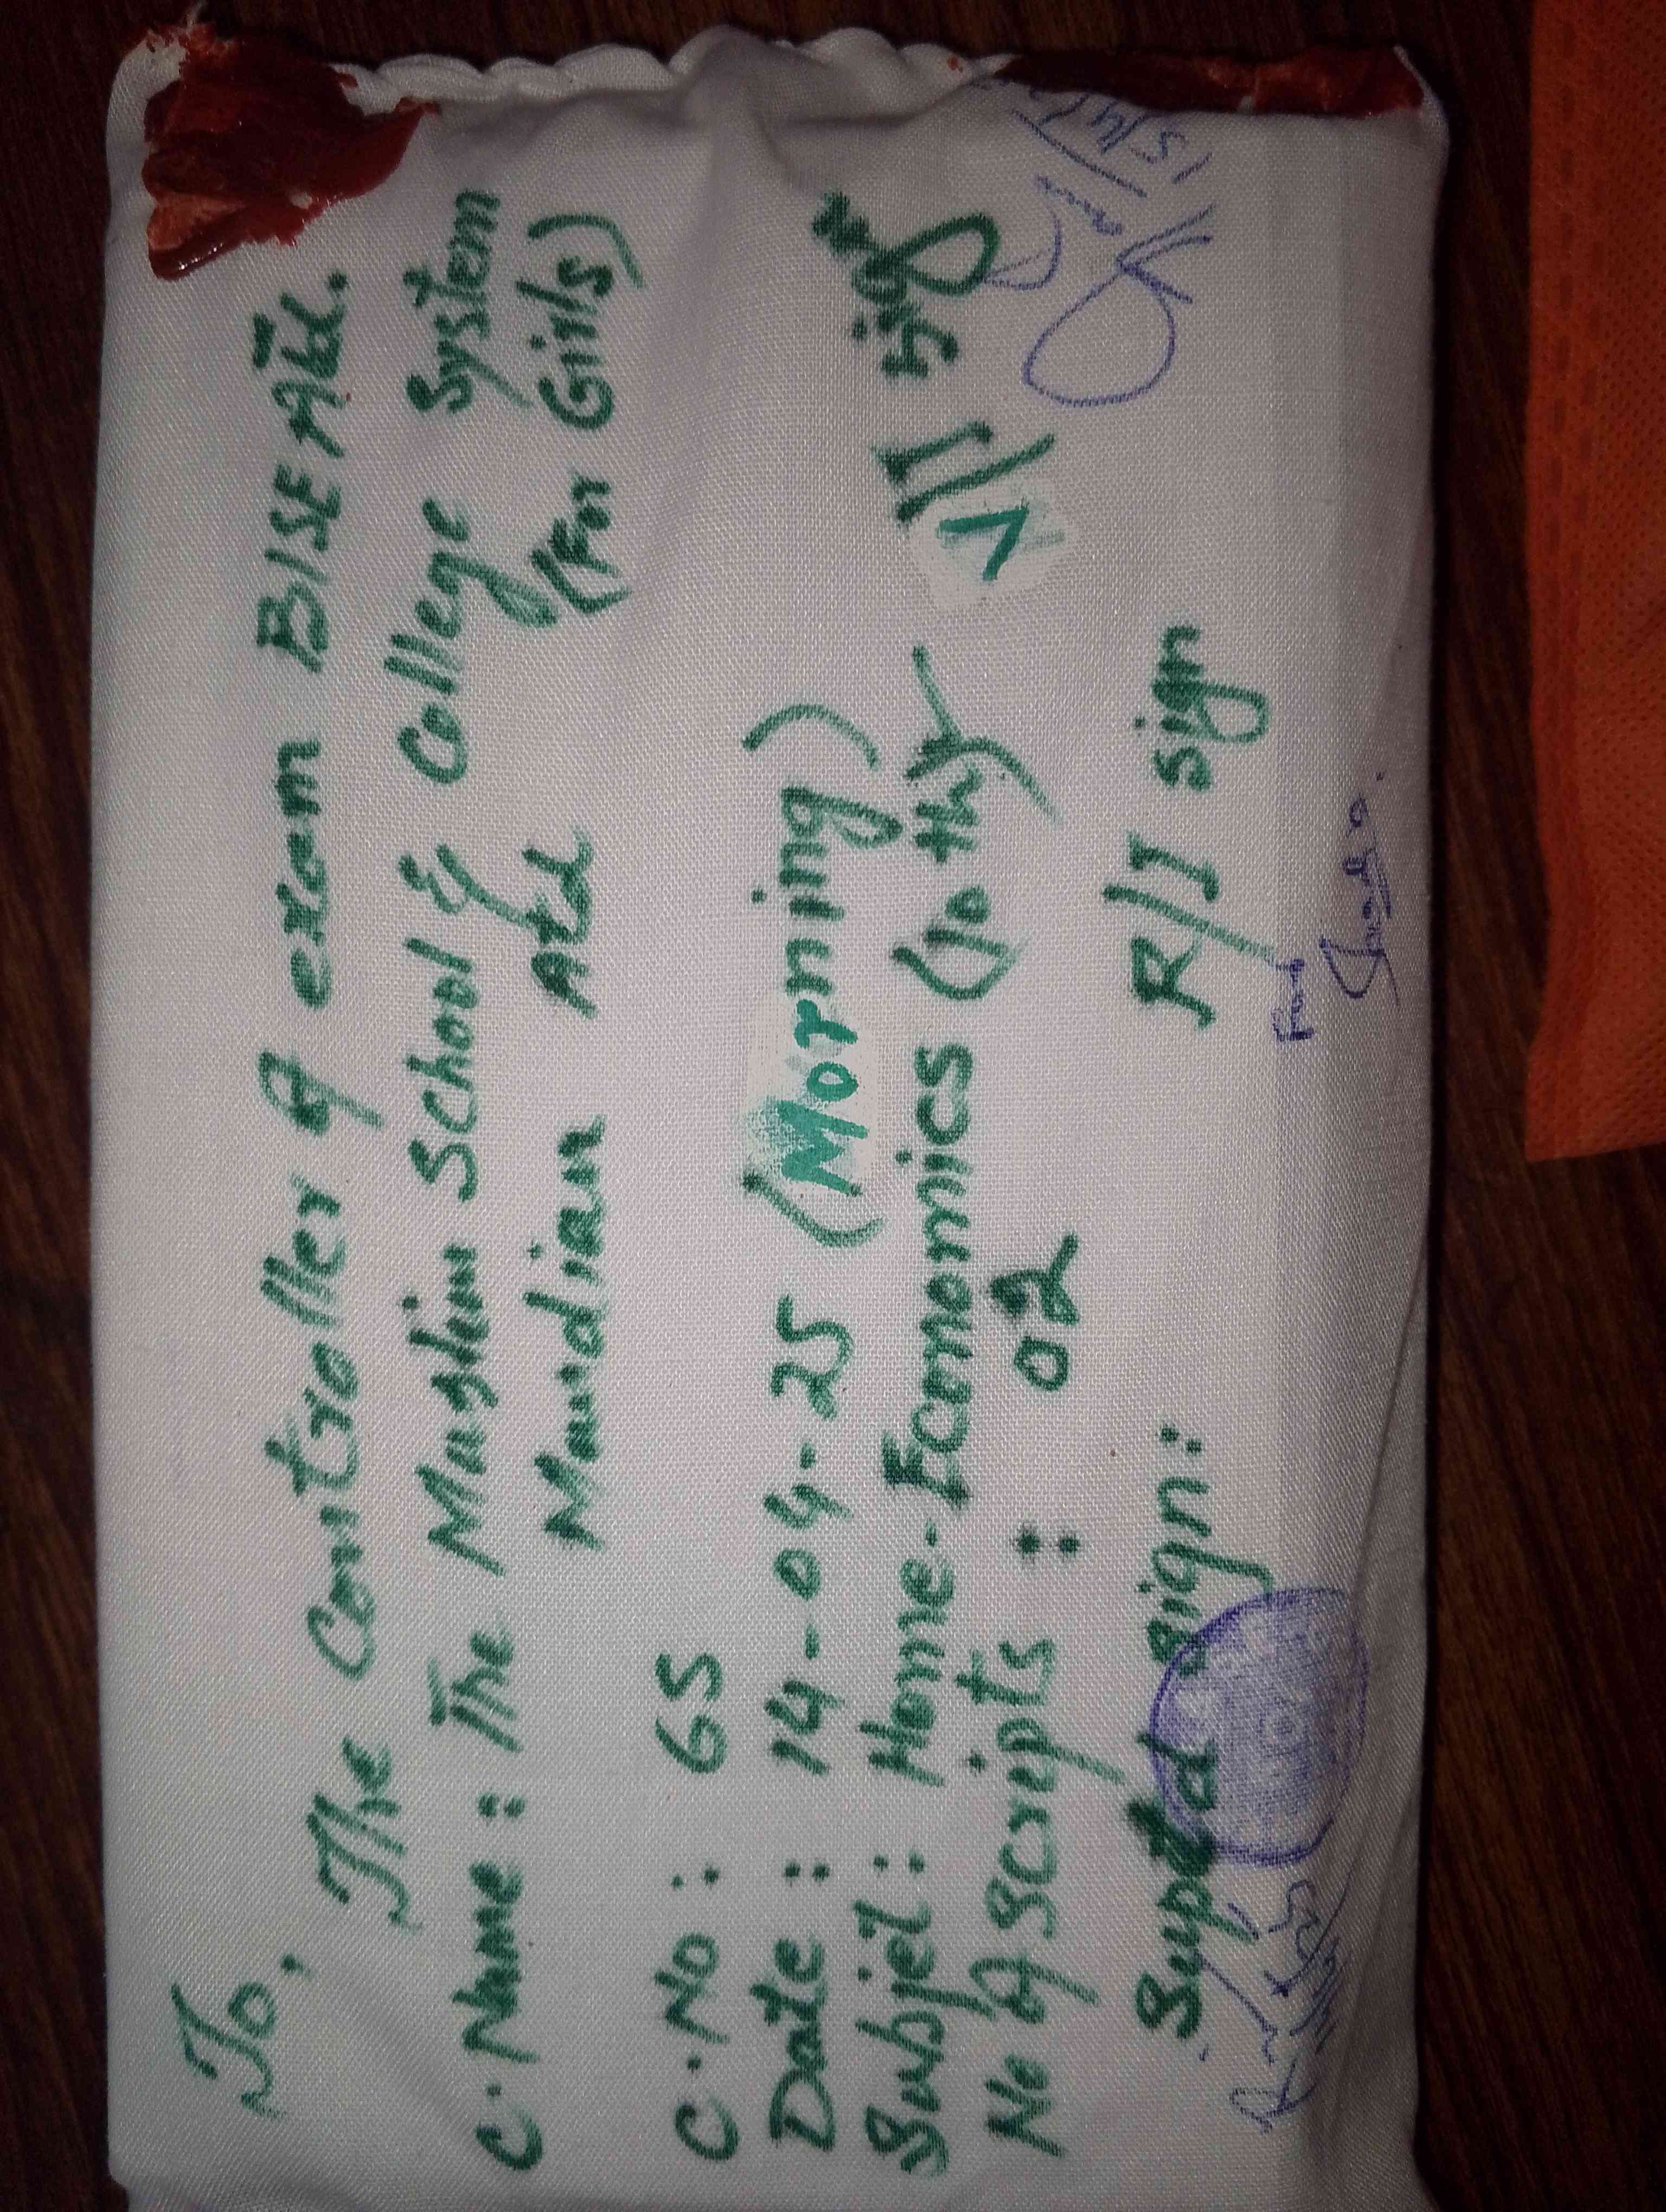 To,
The Controller of exam BISE Atd.
C. Name : The Muslim School & College System
Mandian Atd (For Girls)
C. No : 65
Date : 14-04-25 (Morning)
Subject : Home-Economics (10 th)
No of Scripts : 02
V/I sign
Suptd sign:
R/I sign